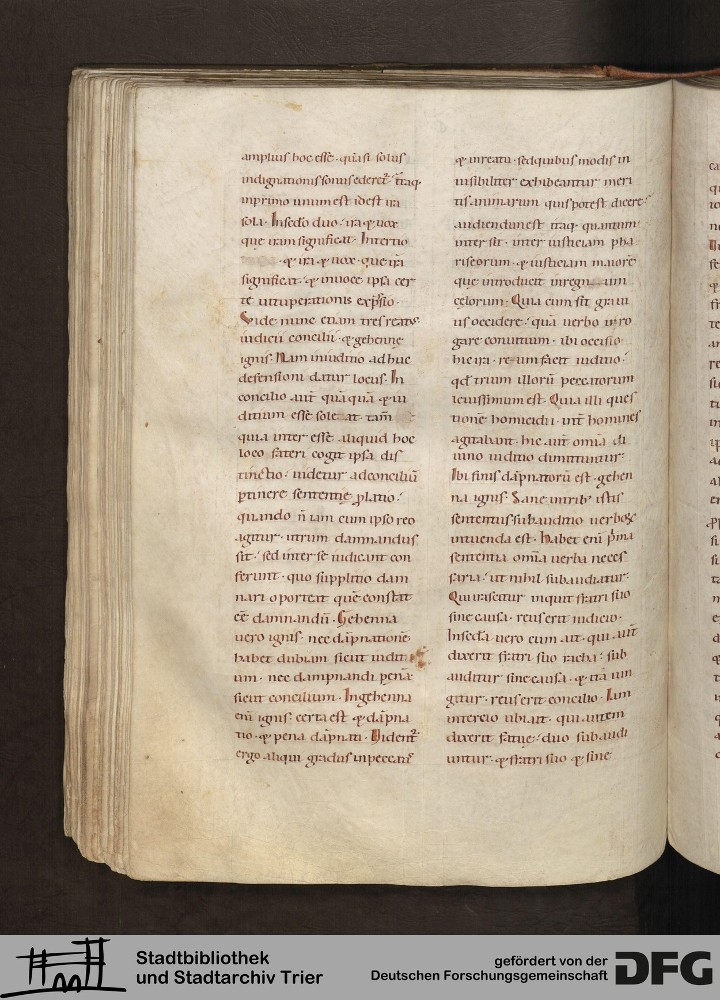 amplius hoc esse · quasi solus
indignationis sonus ederet᷑ · Itaq·
in primo unum est id est ira
sola · In sedo duo · ira & uox
que iram significat · In tertio
· & ira & uox · que irā
significat · & in uoce ipsa cer
te uituperationis exp̄ssio ·
Vide nunc etiam tres reatus
iudicii concilii · & gehenne
ignis · Nam in iuditio adhuc
defensioni datur locus · In
concilio aut̄ quāquā & iu
ditium esse solet at tam̄
quia inter esse aliquid hoc
loco fateri cogit ipsa dis
tinctio · uidetur ad conciliū
ꝑtinere sententie ꝓlatio ·
quando n̄ iam cum ipso reo
agitur · utrum damnandus
sit · sed inter se iudicant con
ferunt · quo supplitio dam
nari oporteat quē constat
eē damnandū · Gehenna
uero ignis · nec dāpnationē
habet dubiam sicut iuditi
um · nec dampnandi penā
sicut concilium · In gehenna
eni ignis certa est & dāpna
tio · & pena dāpnati · Vident᷑
ergo aliqui gradus in peccatis
& in reatu · sed quibus modis in
uisibiliter exhibeantur meri
tis animarum quis potest dicere ·
audiendum est itaq· quantum
inter sit · inter iusticiam pha
riseorum · & iusticiam maiorē
que introducit in regnum
celorum · Quia cum sit graui
us occidere · quā uerbo irro
gare conuitium · ibi occisio
hic ira · reum facit iuditio ·
qd̄ trium illorū peccatorum
leuissimum est · Quia illi ques
tionē homicidii · int̄ homines
agitabant · hic aut̄ omīa di
uino iuditio dimittuntur ·
Ibi finis dāpnatorū est · gehen
na ignis · Sane in trib; istis
sententiis subauditio uerboꝝ
intuenda est · Habet eni p̄ma
sententia omīa uerba neces
saria · ut nihil subaudiatur ·
Qui irascetur inquit fratri suo
sine causa · reus erit iudicio ·
In seda uero cum ait · qui aut̄
dixerit fratri suo racha · sub
auditur sine causa · & ita iun
gitur · reus erit concilio · Iam
in tercio ubi ait · qui autem
dixerit fatue · duo subaudi
untur · & fratri suo & sine
Stadtbibliothek
und Stadtarchiv Trier
gefördert von der
Deutschen Forschungsgemeinschaft
DFG